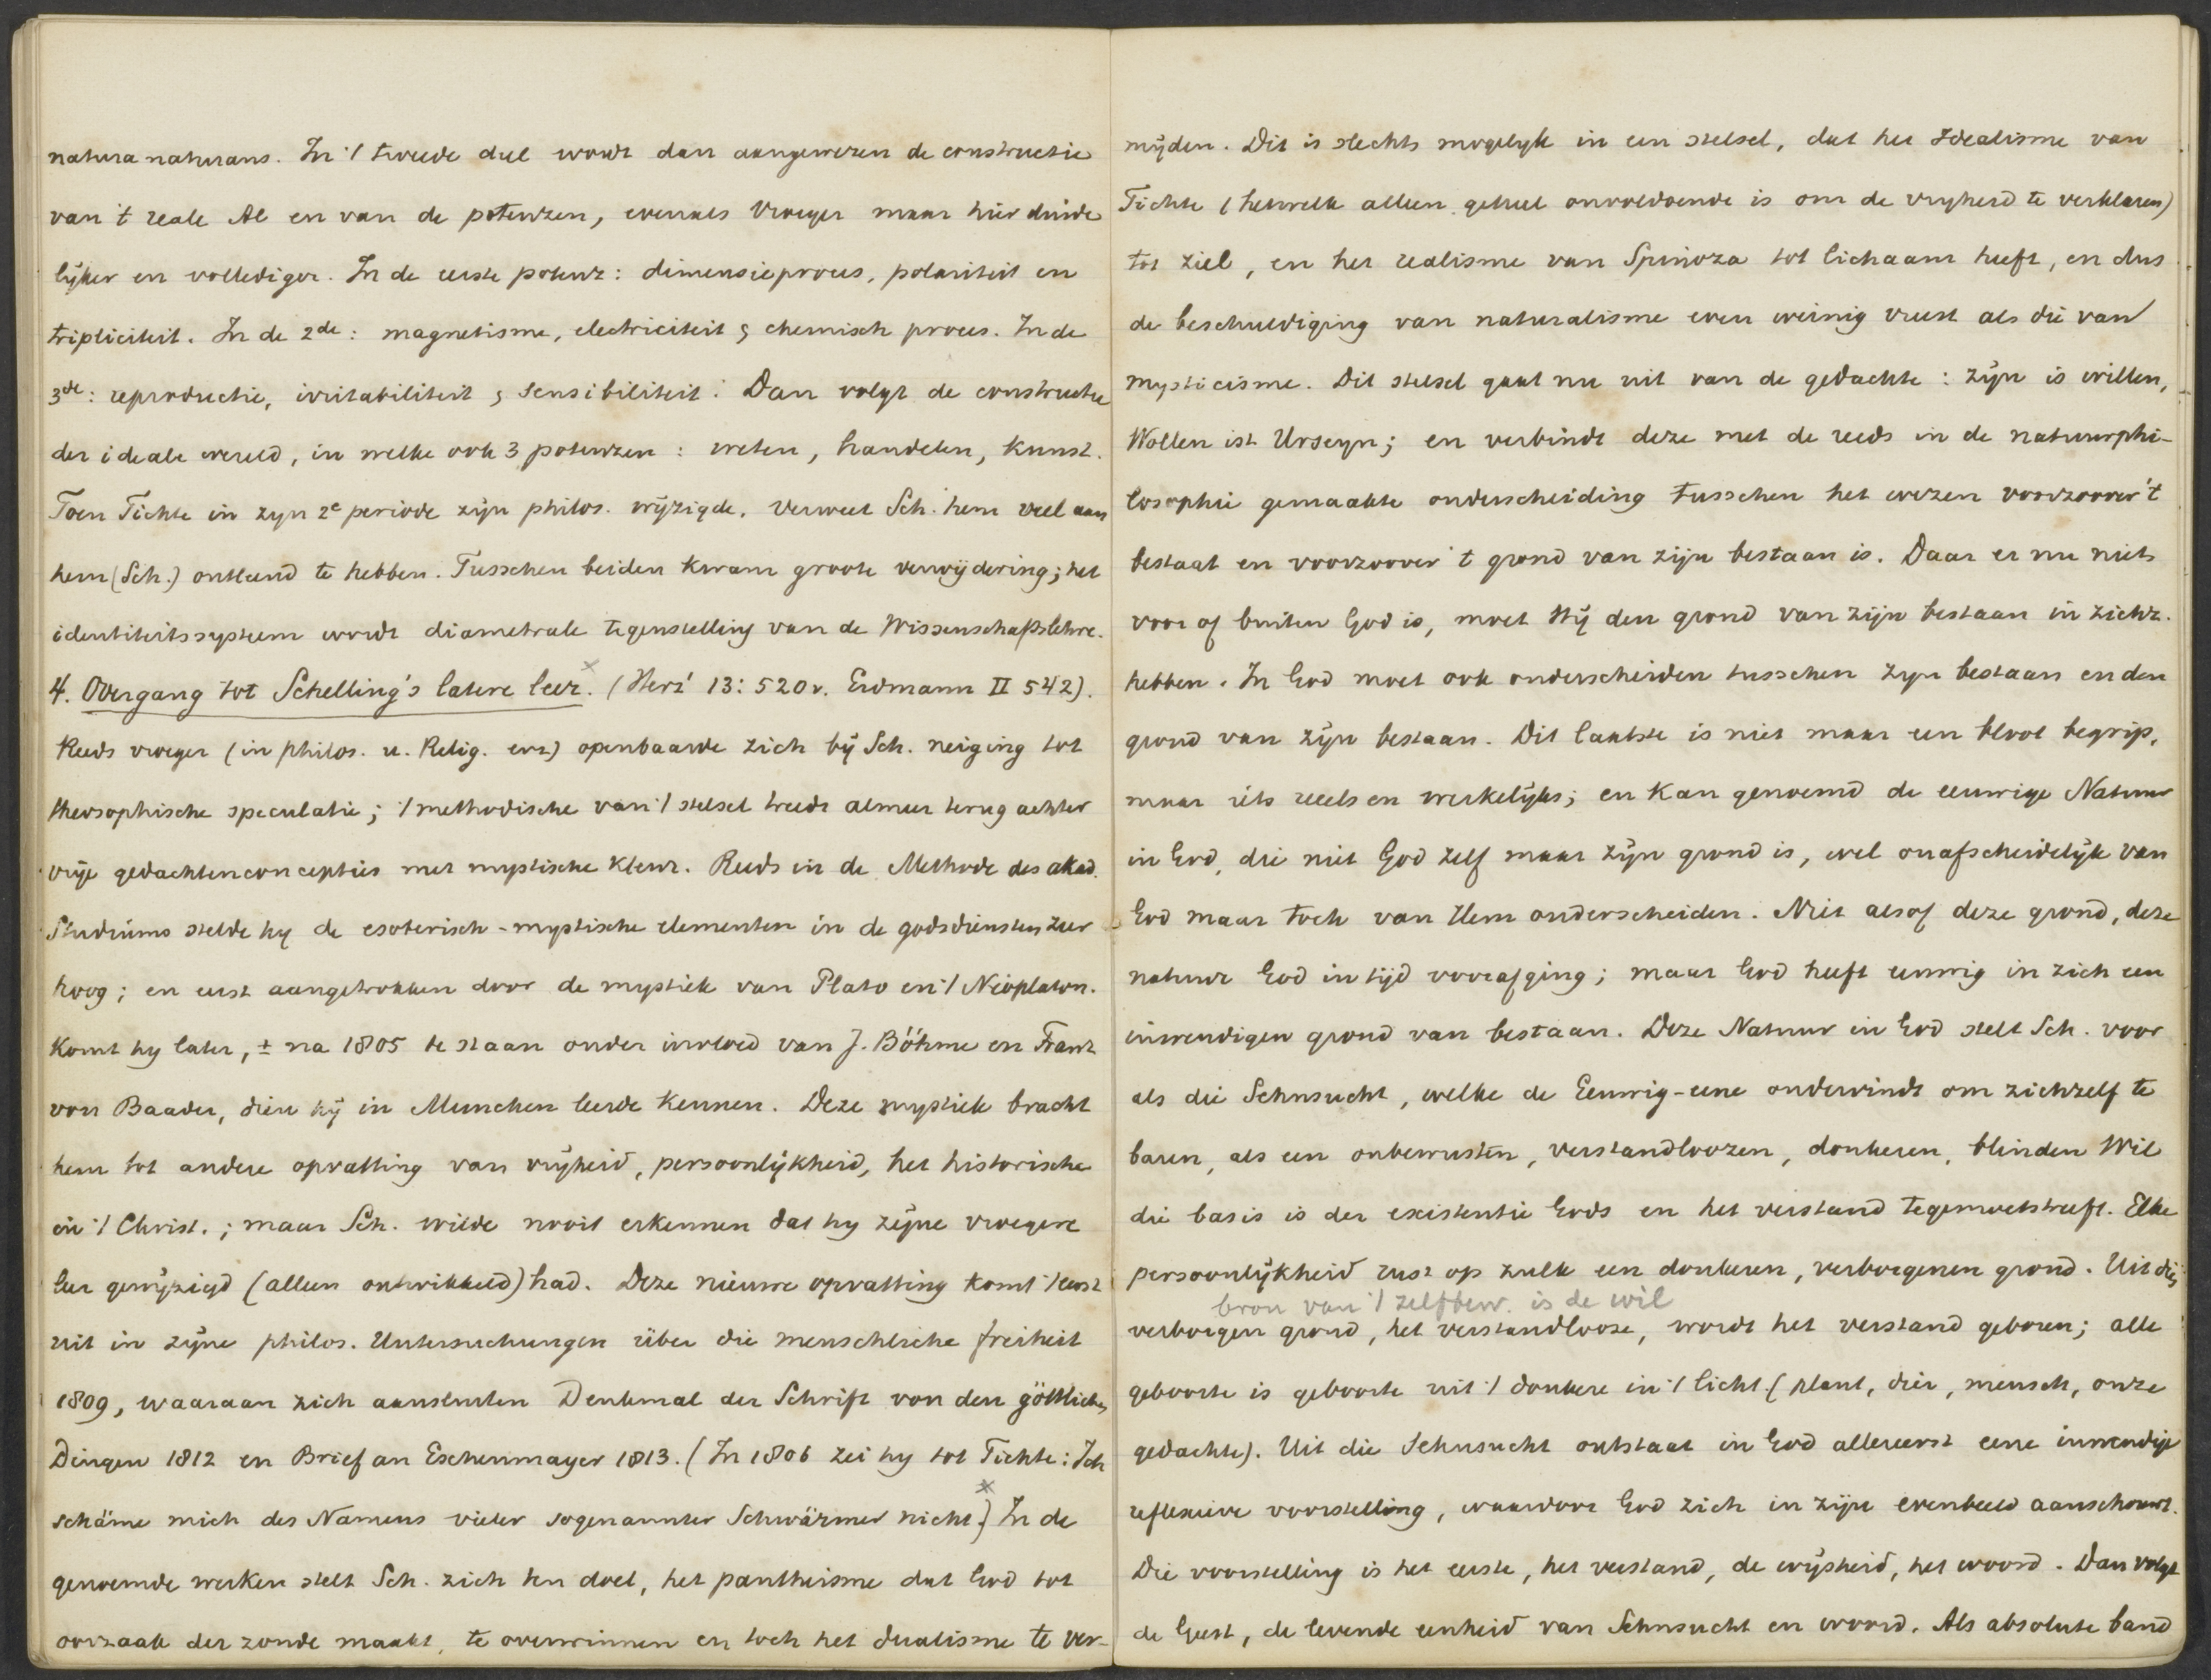 natura naturans. In 't tweede deel wordt dan aangewezen de constructie
van 't reale Al en van de potenzen, evenals vroeger maar hier duide
lijker en vollediger. In de eerste potenz: dimensieproces, polariteit en
tripliciteit. In de 2de: magnetisme, electriciteit & chemisch proces. In de
3de: reproductie, irritabiliteit & sensibiliteit. Dan volgt de constructie
der ideale wereld, in welke ook 3 potenzen: weten, handelen, kunst.
Toen Fichte in zyn 2e periode zijn philos. wijzigde, verweet Sch. hem veel aan
hem (Sch.) ontleend te hebben. Tusschen beiden kwam groote verwijdering; het
identiteitssysteem wordt diametrale tegenstelling van de Wissenschaftslehre.
4. Overgang tot Schelling's latere leer. (Herz' 13: 520v. Erdmann II 542).
Reeds vroeger (in philos. u. Relig. enz) openbaarde zich bij Sch. neiging tot
theosophische speculatie; 't methodische van 't stelsel treedt almeer terug achter
vrije gedachtenconcepties met mystische kleur. Reeds in de Methode des akad.
Studiums stelde hy de esoterisch-mystische elementen in de godsdiensten zeer
hoog; en eerst aangetrokken door de mystiek van Plato en 't Neoplaton.
komt hy later, ± na 1805 te staan onder invloed van J. Böhme en Franz
von Baader, dien hij in Munchen leerde kennen. Deze mystiek bracht
hem tot andere opvatting van vrijheid, persoonlijkheid, het historische
in 't Christ.; maar Sch. wilde nooit erkennen dat hy zijne vroegere
leer gewijzigd (alleen ontwikkeld) had. Deze nieuwe opvatting komt 't eerst
uit in zijne philos. Untersuchungen über die menschliche freiheit
1809, waaraan zich aansluiten Denkmal der Schrift von den göttlichen
Dingen 1812 en Brief an Eschenmayer 1813. (In 1806 zei hy tot Fichte: Ich
schäme mich des Namens vieler sogenannter Schwärmer nicht.) In de
genoemde werken stelt Sch. zich ten doel, het pantheisme dat God tot
oorzaak der zonde maakt, te overwinnen en toch het dualisme te ver-
mijden. Dit is slechts mogelyk in een stelsel, dat het Idealisme van
Fichte (hetwelk alleen geheel onvoldoende is om de vryheid te verklaren)
tot ziel, en het realisme van Spinoza tot lichaam heeft, en dus
de beschuldiging van naturalisme even weinig vreest als die van
mysticisme. Dit stelsel gaat nu uit van de gedachte: zijn is willen,
Wollen ist Urseyn; en verbindt deze met de reeds in de natuurphi-
losophie gemaakte onderscheiding tusschen het wezen voorzoover 't
bestaat en voorzoover 't grond van zijn bestaan is. Daar er nu niets
voor of buiten God is, moet Hij den grond van zijn bestaan in zichz.
hebben. In God moet ook onderscheiden tusschen zyn bestaan en den
grond van zijn bestaan. Dit laatste is niet maar een bloot begrip,
maar iets reeels en werkelijks; en kan genoemd de eeuwige Natuur
in God, die niet God zelf maar zijn grond is, wel onafscheidelijk van
God maar toch van Hem onderscheiden. Niet alsof deze grond, deze
natuur God in tijd voorafging; maar God heeft eeuwig in zich een
inwendigen grond van bestaan. Deze Natuur in God stelt Sch. voor
als die Sehnsucht, welke de Eeuwig-eene ondervindt om zichzelf te
baren, als een onbewusten, verstandloozen, donkeren, blinden Wil
die basis is der existentie Gods en het verstand tegemoetstreeft. Elke
persoonlijkheid rust op zulk een donkeren, verborgenen grond. Uit dien
bron van 't zelfbew. is de wil
verborgen grond, het verstandlooze, wordt het verstand geboren; alle
geboorte is geboorte uit 't donkere in 't licht (plant, dier, mensch, onze
gedachte). Uit die Sehnsucht ontstaat in God allereerst eene inwendige
reflexieve voorstelling, waardoor God zich in zijn evenbeeld aanschouwt.
Die voorstelling is het eerste, het verstand, de wijsheid, het woord. Dan volgt
de Geest, de levende eenheid van Sehnsucht en woord. Als absolute band